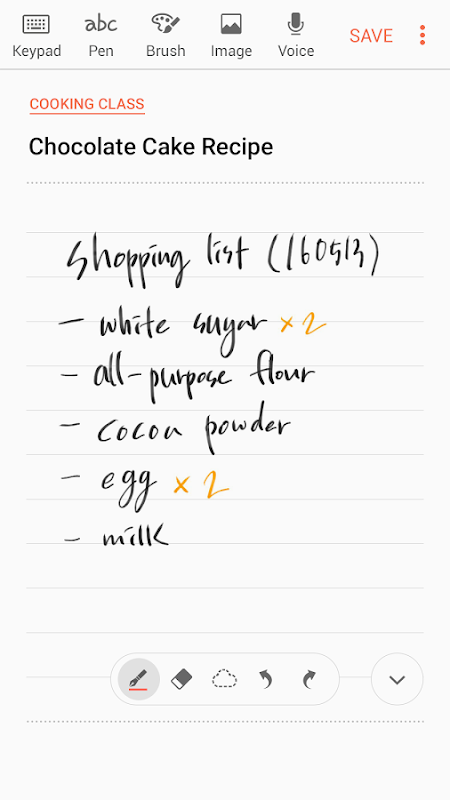 Keypad abc Pen Brush Image Voice SAVE
COOKING CLASS
Chocolate Cake Recipe
Shopping list (160513)
- white sugar × 2
- all-purpose flour
- cocoa powder
- egg × 2
- milk